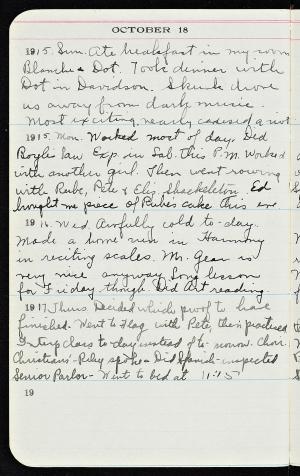 OCTOBER 18
1915. Sun. Ate breakfast in my room
Blanche & Dot. Took dinner with
Dot in Davidson. Skunk drove
us away from dark music.
Most exciting, nearly caused a riot
1915. Mon. Worked most of day. Did
Boyle's law Exp. in Lab. this P.M. Worked
with another girl. Then went rowing
with Rube, Pete & Eliz. Shackelton. Ed
bought me piece of Rube's cake this eve
1916. Wed. Awfully cold to-day.
Made a home run in Harmony
in reciting scales. Mr. Gear is
very nice anyway. Long lesson
for Friday though. Did Art reading.
1917. Thurs. Decided which proof to have
finished. Went to Flag with Pete, then practised
Interp class to-day instead of to-morrow. Choir.
Christians - Riley spoke - Did Spanish - inspected
Senior Parlor - Went to bed at 11:15
19